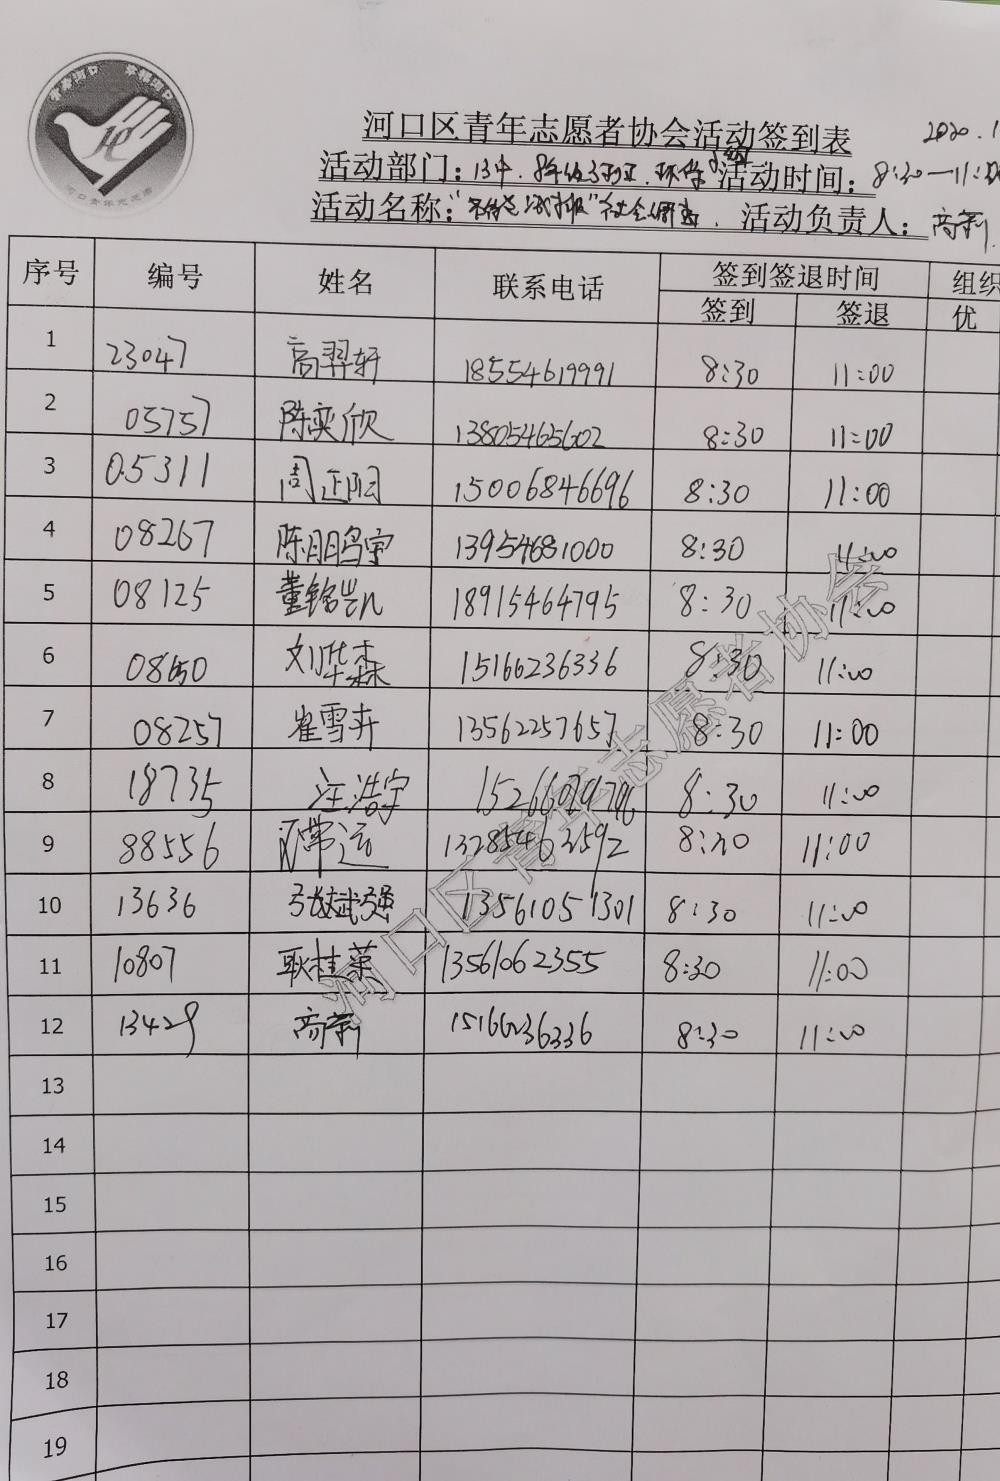 青春河口 幸福河口
河口区青年志愿者协会活动签到表 2020.1
活动部门：13中.8年级3班 活动时间：8:30—11:00
活动名称： 社会调查. 活动负责人：商莉.
序号 编号 姓名 联系电话 签到签退时间 组织
签到 签退 优
1 23047 高羿轩 18554619991 8:30 11:00
2 05757 陈奕欣 13805465602 8:30 11:00
3 05311 周正阳 15006846696 8:30 11:00
4 08267 陈鹏宇 13954681000 8:30 11:00
5 08125 董铭凯 18915464795 8:30 11:00
6 刘华森 15166236336 8:30 11:00
7 08257 崔雪卉 13562257657 8:30 11:00
8 18735 汪浩宇 8:30 11:00
9 88556 常运 8:30 11:00
10 13636 张斌强 13561051301 8:30 11:00
11 10807 耿桂荣 13561062355 8:30 11:00
12 13429 商莉 15166236336 8:30 11:00
13
14
15
16
17
18
19
河口区青年志愿者协会